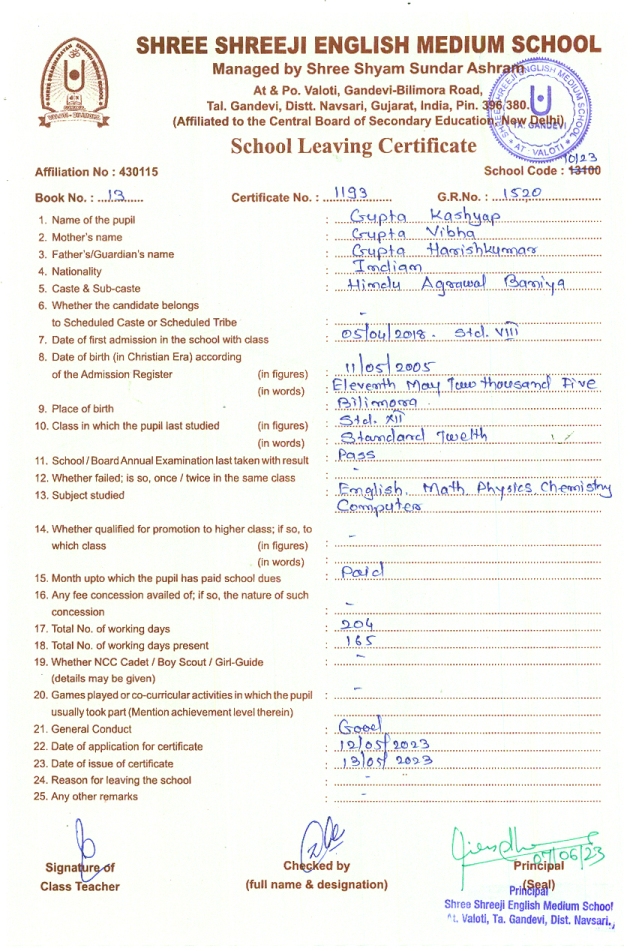 SHREE SHREEJI ENGLISH MEDIUM SCHOOL
Managed by Shree Shyam Sundar Ashram
At & Po. Valoti, Gandevi-Bilimora Road,
Tal. Gandevi, Distt. Navsari, Gujarat, India, Pin. 396 380.
(Affiliated to the Central Board of Secondary Education, New Delhi)
SHREE SHREEJI ENGLISH MEDIUM SCHOOL
TA. GANDEVI
AT - VALOTI
School Leaving Certificate
10/23
Affiliation No : 430115 School Code : 13100
Book No. : 13 Certificate No. : 1193 G.R.No. : 1520
1. Name of the pupil : Gupta Kashyap
2. Mother's name : Gupta Vibha
3. Father's/Guardian's name : Gupta Harishkumar
4. Nationality : Indian
5. Caste & Sub-caste : Hindu Agrawal Baniya
6. Whether the candidate belongs
to Scheduled Caste or Scheduled Tribe : -
7. Date of first admission in the school with class : 05/04/2018. Std. VIII
8. Date of birth (in Christian Era) according
of the Admission Register (in figures) : 11/05/2005
(in words) : Eleventh May Two thousand Five
9. Place of birth : Bilimora
10. Class in which the pupil last studied (in figures) : Std. XII
(in words) : Standard Twelth
11. School / Board Annual Examination last taken with result : Pass
12. Whether failed; is so, once / twice in the same class : -
13. Subject studied : English, Math, Physics Chemistry
Computer
14. Whether qualified for promotion to higher class; if so, to
which class (in figures) : -
(in words) :
15. Month upto which the pupil has paid school dues : Paid
16. Any fee concession availed of; if so, the nature of such
concession : -
17. Total No. of working days : 204
18. Total No. of working days present : 165
19. Whether NCC Cadet / Boy Scout / Girl-Guide : -
(details may be given)
20. Games played or co-curricular activities in which the pupil : -
usually took part (Mention achievement level therein)
21. General Conduct : Good
22. Date of application for certificate : 12/05/2023
23. Date of issue of certificate : 13/05/2023
24. Reason for leaving the school : -
25. Any other remarks : -
07/06/23
Signature of Checked by Principal
Class Teacher (full name & designation) (Seal)
Principal
Shree Shreeji English Medium School
At. Valoti, Ta. Gandevi, Dist. Navsari.